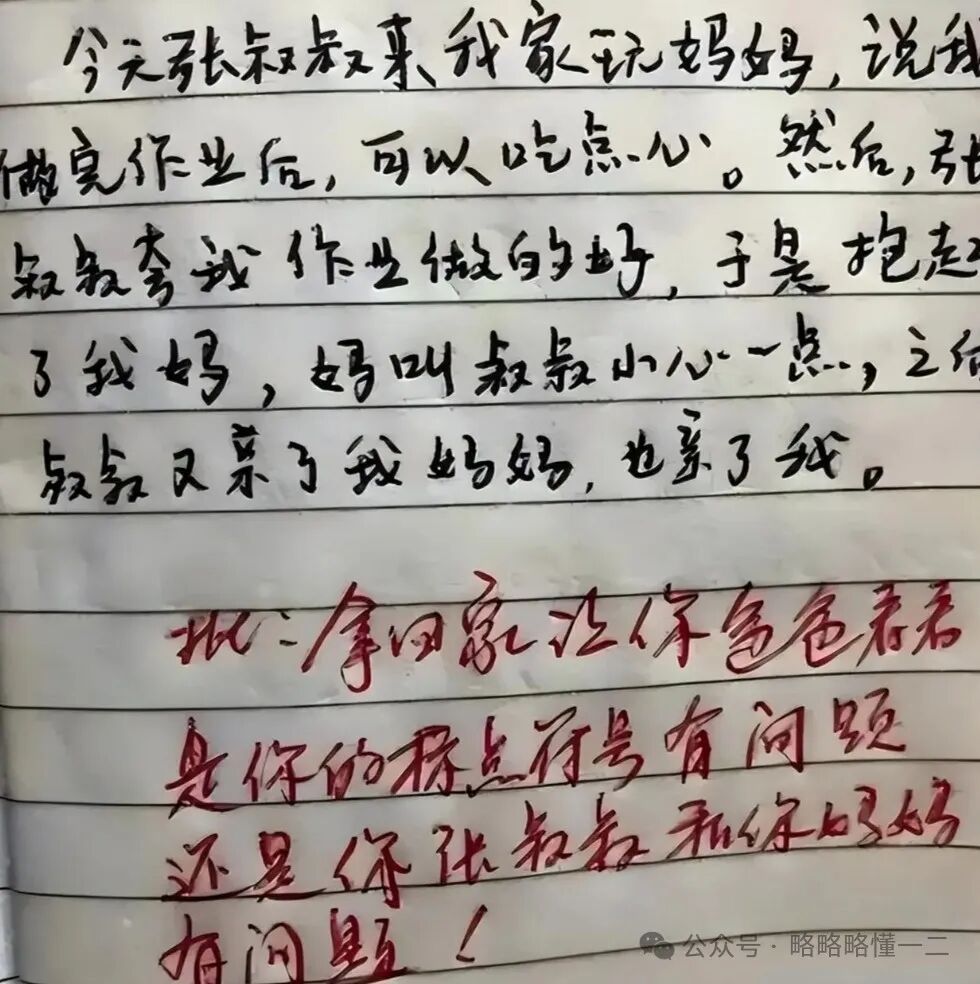 今天张叔叔来我家玩妈妈，说我
做完作业后，可以吃点心。然后，张
叔叔夸我作业做的好，于是抱起
了我妈，妈叫叔叔小心一点，之后
叔叔又亲了我妈妈，也亲了我。
批：拿回家让你爸爸看看
是你的标点符号有问题
还是你张叔叔和你妈妈
有问题！
公众号·略略略懂一二